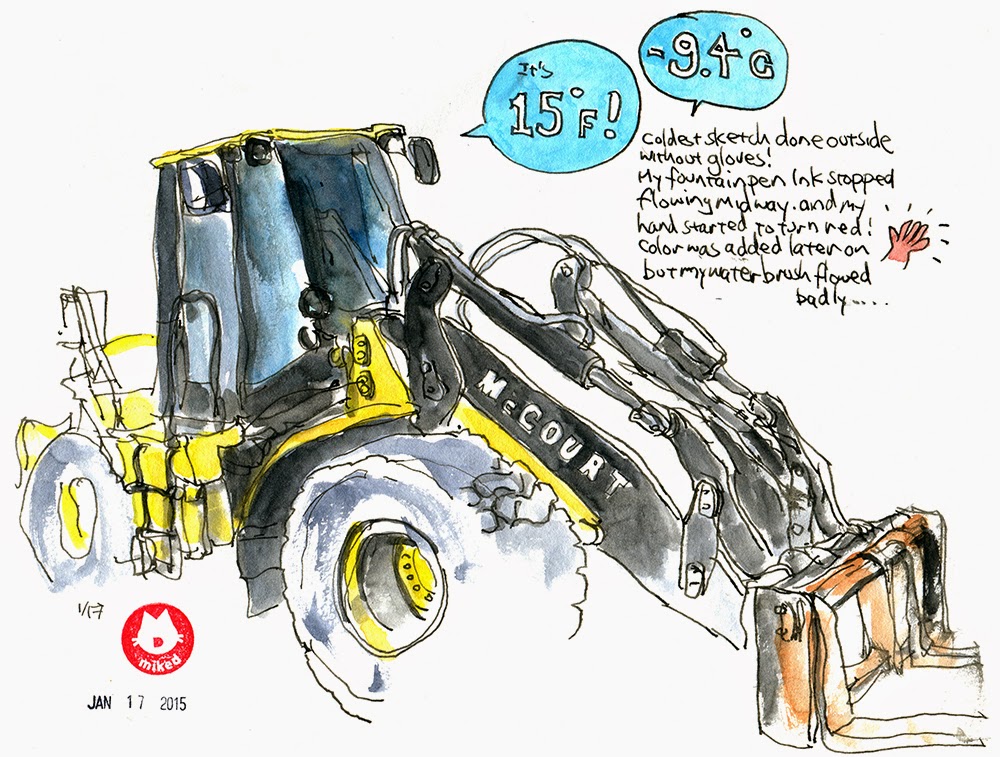 It's
15°F!
-9.4°C
coldest sketch done outside
without gloves!
My fountain pen Ink stopped
flowing midway. and my
hand started to turn red!
color was added later on
but my water brush flowed
badly....
McCOURT
1/17
miked
JAN 17 2015